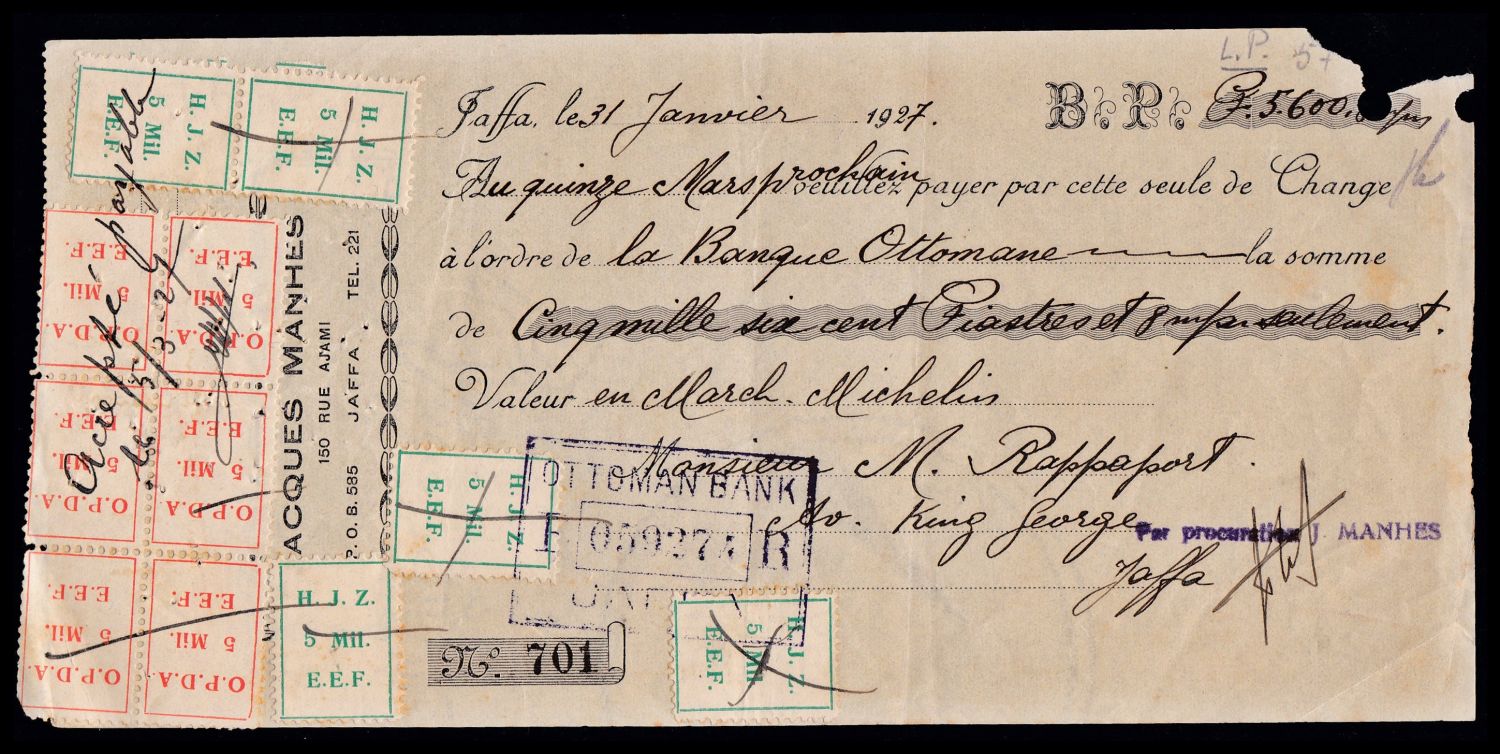 L.P. 57
Jaffa, le 31 Janvier 1927.
B. P. P. 5.600,
Au quinze Mars prochain veuillez payer par cette seule de Change
à l'ordre de la Banque Ottomane la somme
de Cinq mille six cent Piastres et 8 m/m seulement.
Valeur en March. Michelin
Monsieur M. Rappaport.
Av. King George
Jaffa
Par procuration J. MANHES
OTTOMAN BANK
R
No. 701
ACQUES MANHES
150 RUE AJAMI
P.O.B. 585 JAFFA TEL. 221
payable
le 15/3-27
H. J. Z.
5 Mil.
E.E.F.
H. J. Z.
5 Mil.
E.E.F.
O.P.D.A
5 Mil.
E.E.F.
O.P.D.A
5 Mil.
E.E.F.
O.P.D.A.
5 Mil.
E.E.F.
O.P.D.A
5 Mil.
E.E.F.
O.P.D.A
5 Mil.
E.E.F.
O.P.D.A
5 Mil.
E.E.F.
H. J. Z.
5 Mil.
E.E.F.
H. J. Z.
5 Mil
E.E.F.
H. J. Z.
5 Mil
E.E.F.